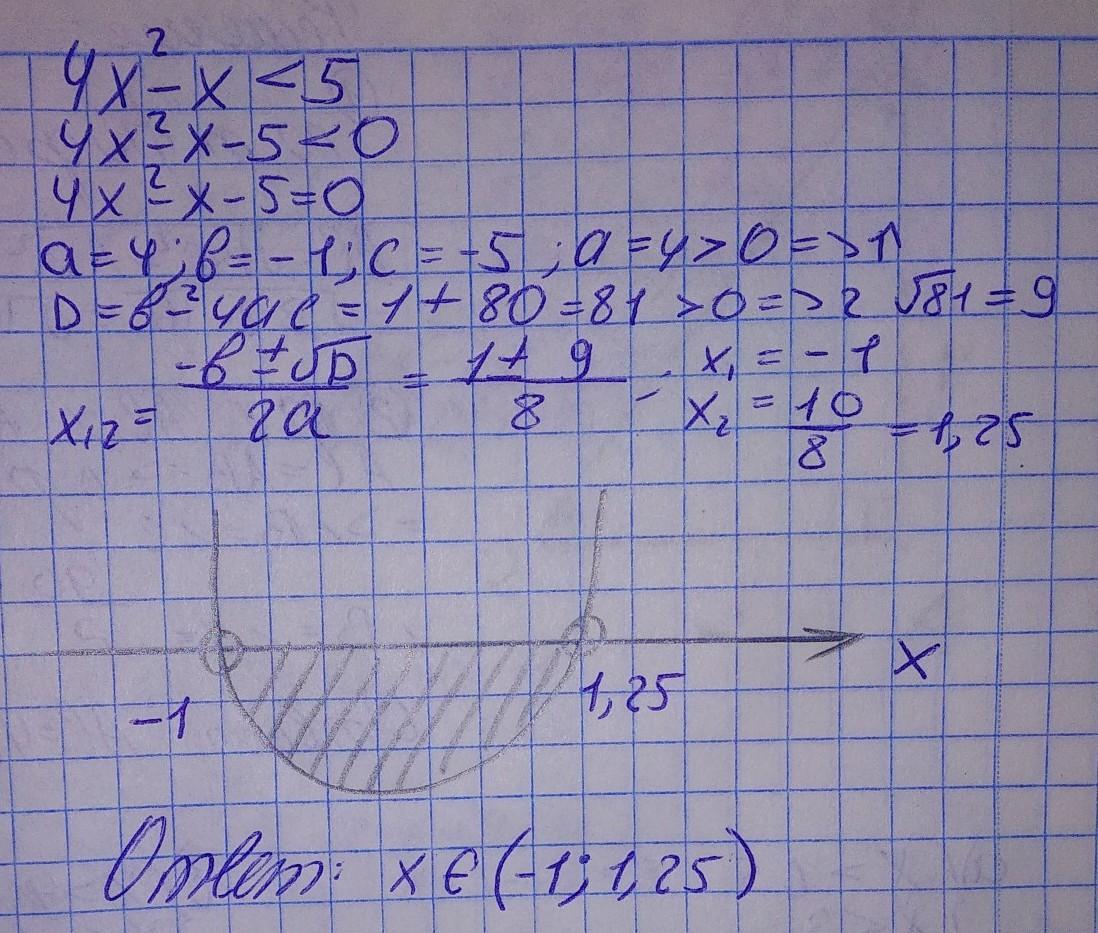 4x² - x < 5
4x² - x - 5 < 0
4x² - x - 5 = 0
a = 4; в = -1; c = -5; a = 4 > 0 => ↑
D = в² - 4ac = 1 + 80 = 81 > 0 => 2 √81 = 9
x₁,₂ = (-в ± √D)/(2a) = (1 ± 9)/8 = x₁ = -1
x₂ = 10/8 = 1,25
x
-1
1,25
Ответ: x ∈ (-1; 1,25)